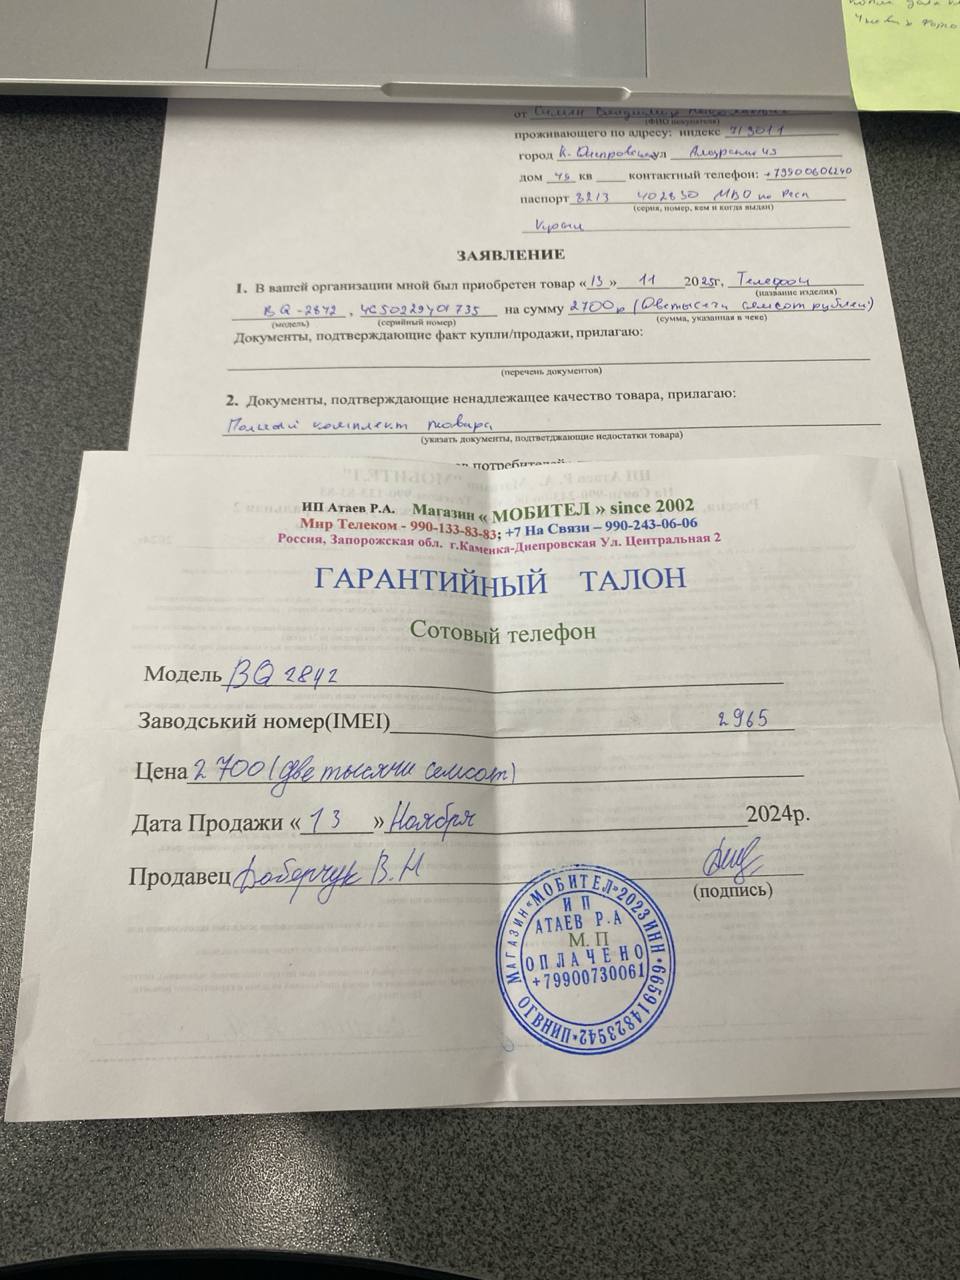 от Владимир
(ФИО покупателя)
проживающего по адресу: индекс 713011
город К. Днепровская ул
дом 45 кв контактный телефон: +79900606240
паспорт 3213 402830 МВД по Респ
(серия, номер, кем и когда выдан)
Крым
ЗАЯВЛЕНИЕ
1. В вашей организации мной был приобретен товар «13» 11 2025г, Телефон
(название изделия)
BQ-2842, 4C50229401735 на сумму 2700р (Две тысячи семсот рублей)
(модель) (серийный номер) (сумма, указанная в чеке)
Документы, подтверждающие факт купли/продажи, прилагаю:
(перечень документов)
2. Документы, подтверждающие ненадлежащее качество товара, прилагаю:
Полный комплект товара
(указать документы, подтветджающие недостатки товара)
ИП Атаев Р.А. Магазин « МОБИТЕЛ » since 2002
Мир Телеком - 990-133-83-83; +7 На Связи – 990-243-06-06
Россия, Запорожская обл. г.Каменка-Днепровская Ул. Центральная 2
ГАРАНТИЙНЫЙ ТАЛОН
Сотовый телефон
Модель BQ 2842
Заводський номер(IMEI) 2965
Цена 2 700 (две тысячи семсот)
Дата Продажи «13» Ноября 2024р.
Продавец Доберчук В.Н
(подпись)
МАГАЗИН «МОБИТЕЛ» 2023 ИНН • 665914823542 • ОГВНИП
ИП
АТАЕВ Р.А
М. П
ОПЛАЧЕНО
+79900730061